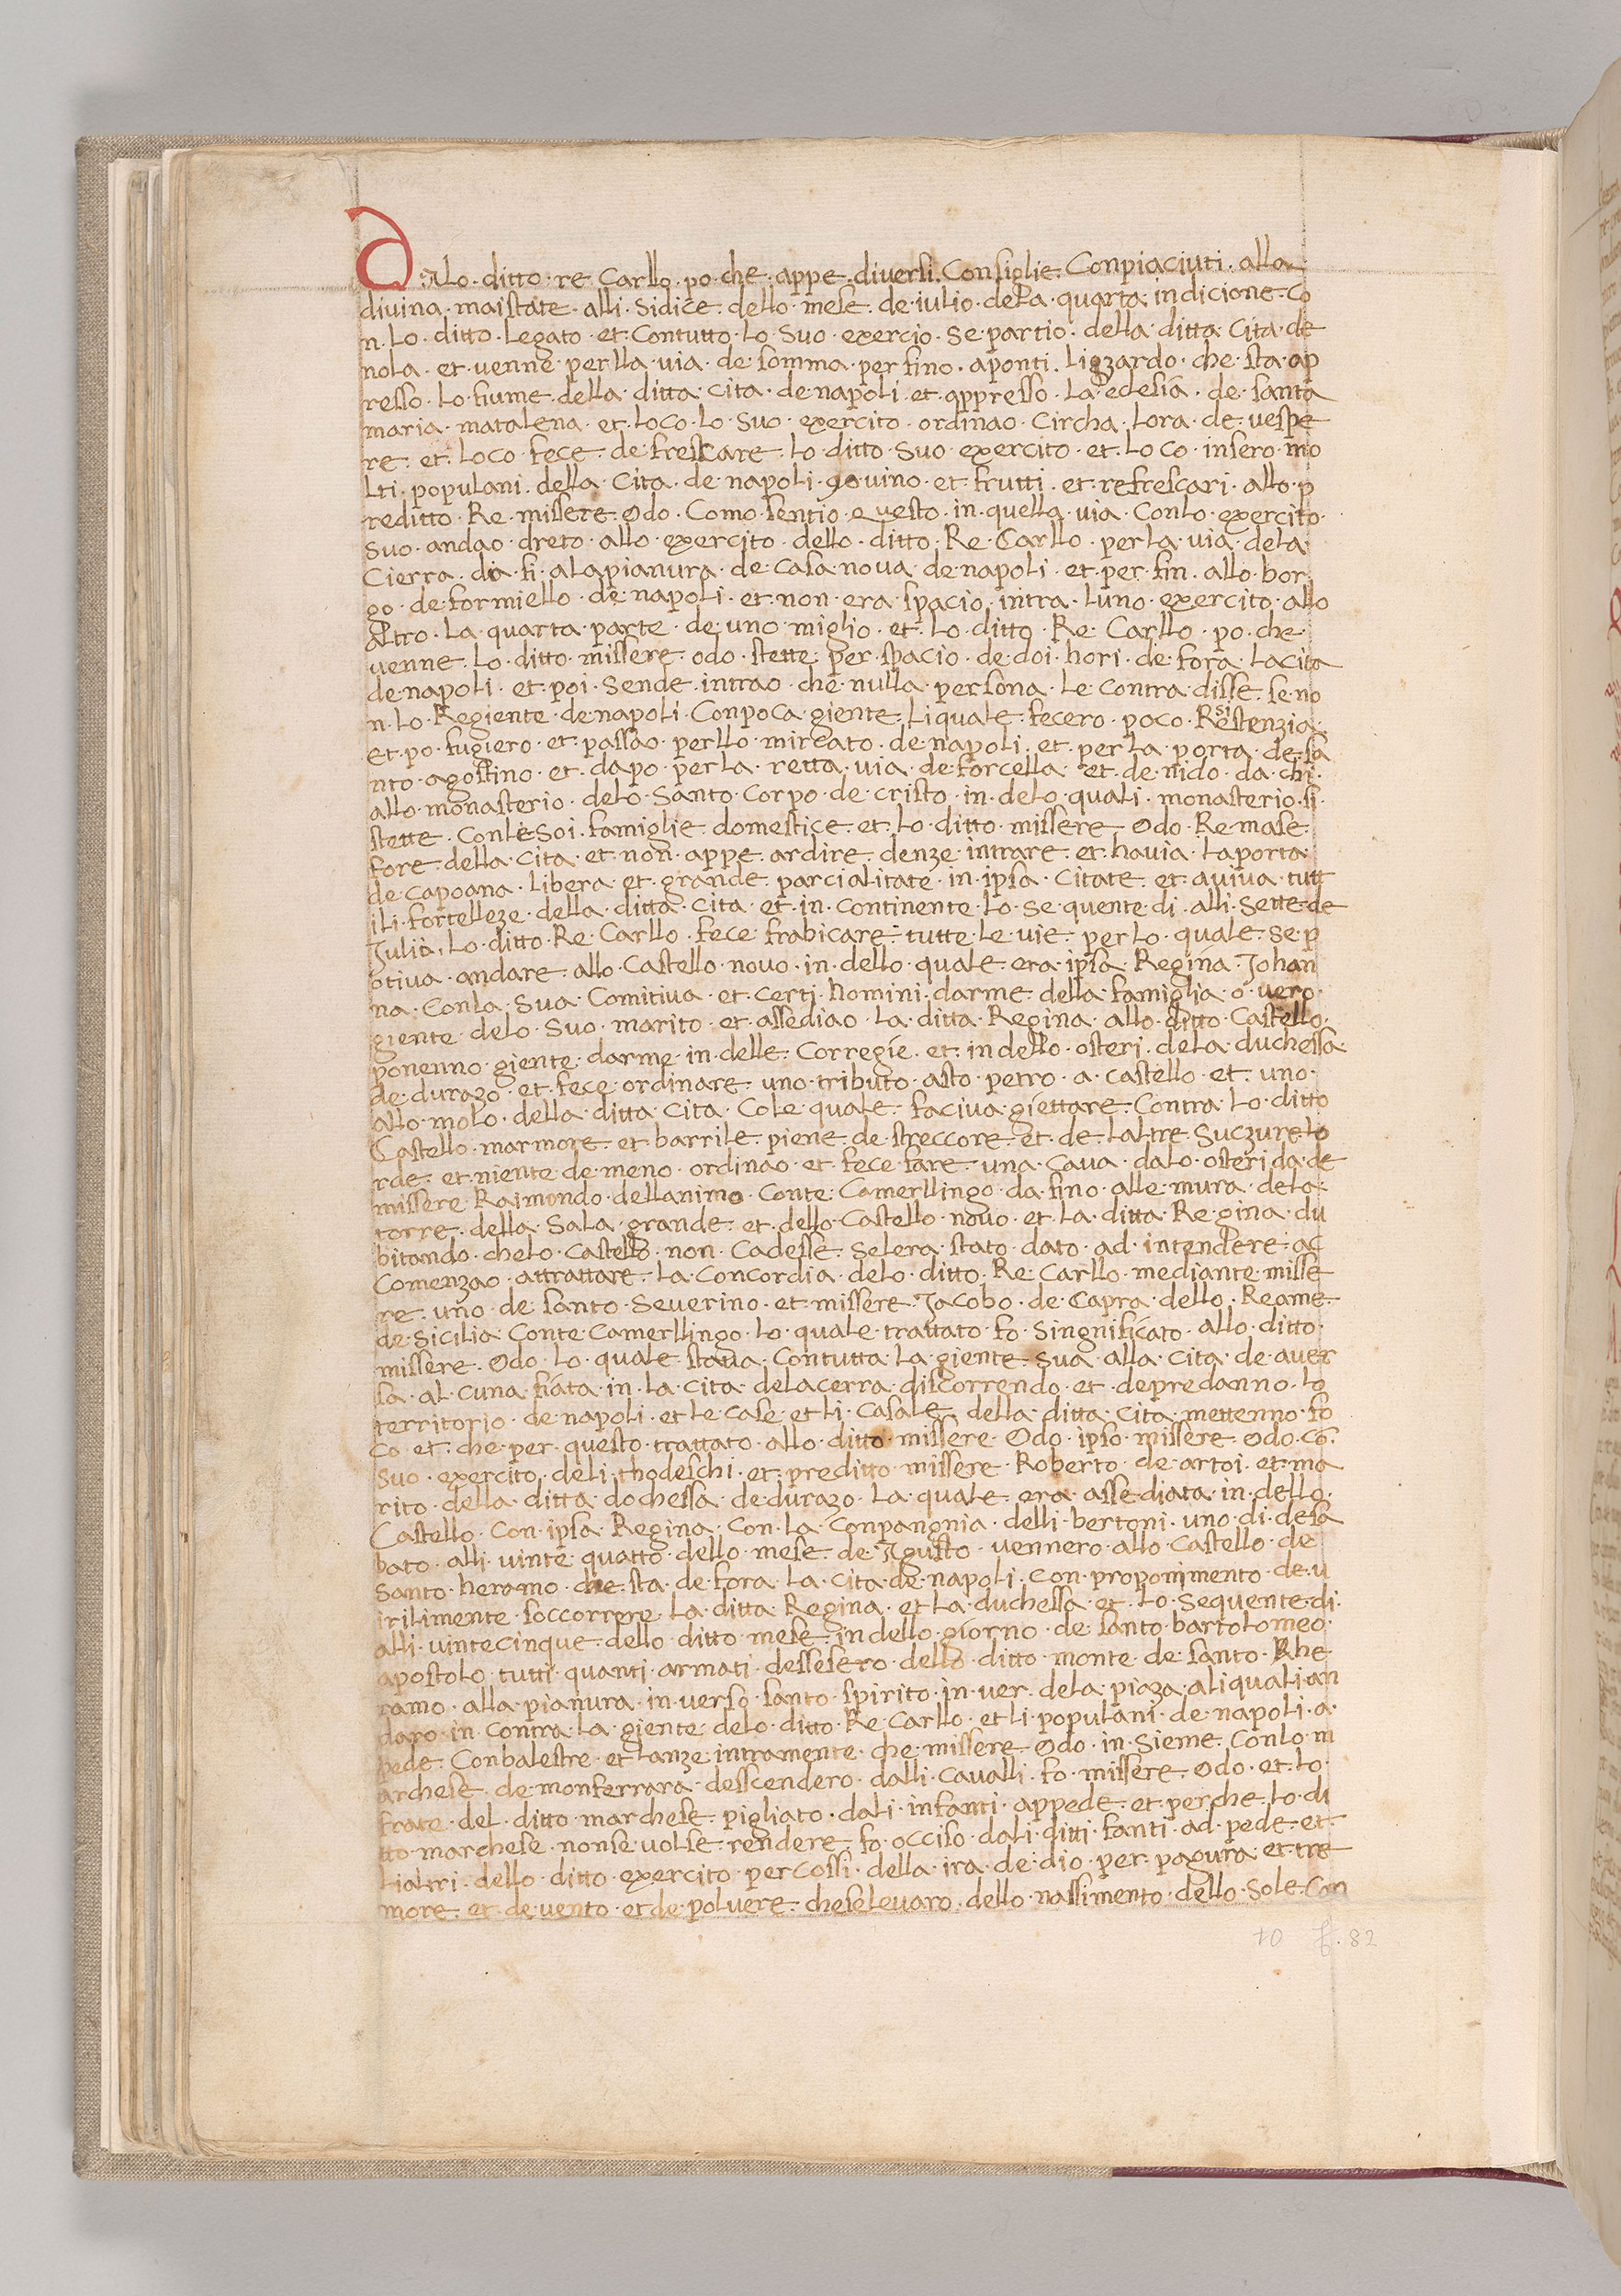 Dalo · ditto · re Carllo · po · che · appe · diversi · Consiglie · Conpiaciuti · alla
divina · maistate · alli · Sidice · dello · mese · de · iulio · dela · quarta · indicione · Co
n · Lo · ditto · Legato · et · Contutto · Lo · Suo · exercio · Se · partio · della · ditta · Cita · de
nola · et · venne · perlla · via · de · somma · per fino · aponti · Ligzzardo · che · sta · ap
resso · Lo · fiume · della · ditta · cita · de napoli · et · appresso · La · eclesia · de · santa
maria · matalena · et · Loco · Lo · Suo · exercito · ordinao · Circha · Lora · de · vespe
re · et · Loco · fece · de frescare · Lo · ditto · Suo · exercito · et · Loco · insero · mo
Lti · populani · della · Cita · de napoli · 9o vino · et · frutti · et · refrescari · allo · p
reditto · Re · missere · Odo · Como · sentio · questo · in · quella · via · Conlo · exercito ·
Suo · andao · dreto · allo · exercito · dello · ditto · Re · Carllo · perla · via · dela
Cierra · da · fi · alapianura · de · casa nova · denapoli · et · per · fin · allo · bor
go · de · formiello · de napoli · et · non · era · spacio · intra · Luno · exercito · allo
altro · La · quarta · parte · de · uno · miglio · et · Lo · ditto · Re · Carllo · po · che ·
venne · Lo · ditto · missere · odo · stette · per · spacio · de · doi · hori · de · fora · Lacita
de napoli · et · poi · Sende · intrao · che · nulla · persona · Le · Contra · disse · se · no
n · Lo · Regiente · denapoli · Conpoca · giente · Li quale · fecero · poco · Resistenzia ·
et · po · fugiero · et · passao · perllo · mircato · de napoli · et · per la · porta · de · sa
nto · agostino · et · dapo · per la · retta · via · de forcella · et · de nido · da · chi ·
allo · monasterio · delo · Santo · Corpo · de cristo · in · delo · quali · monasterio · si ·
stette · Conle Soi · famiglie · domestice · et · Lo · ditto · missere · Odo · Re mase ·
fore · della · cita · et · non · appe · ardire · denze · intrare · et · havia · La porta ·
de · Capoana · Libera · et · grande · parcialitate · in · ipsa · Citate · et · aviva · tutt
ili · fortelleze · della · ditta · cita · et · in · continente · Lo · se quente · di · alli · Sette · de
Julio · Lo · ditto · Re · Carllo · fece · frabicare · tutte · Le · vie · per Lo · quale · Se · p
otiva · andare · allo · Castello · novo · in · dello · quale · era · ipsa · Regina · Johan
na · Conla · Sua · Comitiva · et · certi · homini · darme · della · famiglia · o · vero ·
giente · delo · Suo · marito · et · assediao · La · ditta · Regina · allo · ditto · Castello ·
ponenno · giente · darme · in · delle · Corregie · et · indello · osteri · dela · duchessa
de · durazo · et · fece · ordinare · uno · tributo · asto · petro · a · castello · et · uno ·
allo · molo · della · ditta · Cita · Cole · quale · faciva · giettare · Contra · Lo · ditto
Castello · marmore · et · barrile · piene · de · streccore · et · de · Laltre · Suczure Lo
rde · et · niente · de · meno · ordinao · et · fece · fare · una · Cava · dalo · osteri da · de
missere · Raimondo · dellanimo · Conte · Camerllingo · da · fino · alle · mura · dela ·
torre · della · Sala · grande · et · dello · Castello · novo · et · La · ditta · Regina · du
bitando · chelo · Castello · non · Cadesse · Selera · stato · dato · ad · intendere · ac
Comenzao · attrattare · La · Concordia · delo · ditto · Re · Carllo · mediante · misse
re · uno · de · santo · Severino · et · missere · Jacobo · de · Capra · dello · Reame ·
de · Sicilia · Conte · Camerllingo · Lo · quale · trattato · fo · Singnificato · allo · ditto ·
missere · Odo · Lo · quale · stava · Contutta · La · giente · Sua · alla · Cita · de · aver
sa · al · cuna · fiata · in · la · cita · delacerra · discorrendo · et · depredanno · Lo
territorio · de napoli · et Le · Case · et Li · Casale · della · ditta · Cita · mettenno · fo
Co · et · che · per · questo · trattato · allo · ditto · missere · Odo · ipso · missere · odo · cō ·
Suo · exercito · deli · thodeschi · et · preditto · missere · Roberto · de · artoi · et · ma
rito · della · ditta · dochessa · de durazo · La · quale · era · assediata · in · dello ·
Castello · Con · ipsa · Regina · Con · La · Conpangnia · delli · bertoni · uno · di · desa
bato · alli · vinte · quatto · dello · mese · de · Agusto · vennero · allo · Castello · de
Santo · heramo · che · sta · de · fora · La · Cita · de · napoli · con · proponimento · de · v
irilimente · soccorrere · La · ditta · Regina · et La · duchessa · et · Lo · Sequente · di ·
alli · vinte cinque · dello · ditto · mese · in dello · giorno · de · santo · bartolomeo ·
apostolo · tutti · quanti · armati · dessesero · dello · ditto · monte · de · santo · Rhe
ramo · alla · pianura · in · verso · santo · spirito · in · ver · dela · piaza · ali quali · an
daro · in · Contra · La · giente · delo · ditto · Re · Carllo · et Li · populani · de napoli · a ·
pede · Conbalestre · et Lanze · intramente · che · missere · Odo · in · Sieme · Con lo · m
archese · de · monferrara · dessendero · dalli · cavalli · fo · missere · Odo · et · Lo ·
frate · del · ditto · marchese · pigliato · dali · infanti · appede · et · perche · Lo · di
tto · marchese · nonse · volse · rendere · fo · occiso · dali · ditti · fanti · ad · pede · et ·
Lialtri · dello · ditto · exercito · per Cossi · della · ira · de · dio · per · pagura · et · tre
more · et · de vento · et de · polvere · chese levaro · dello · nassimento · dello · Sole · Con
70 f. 82